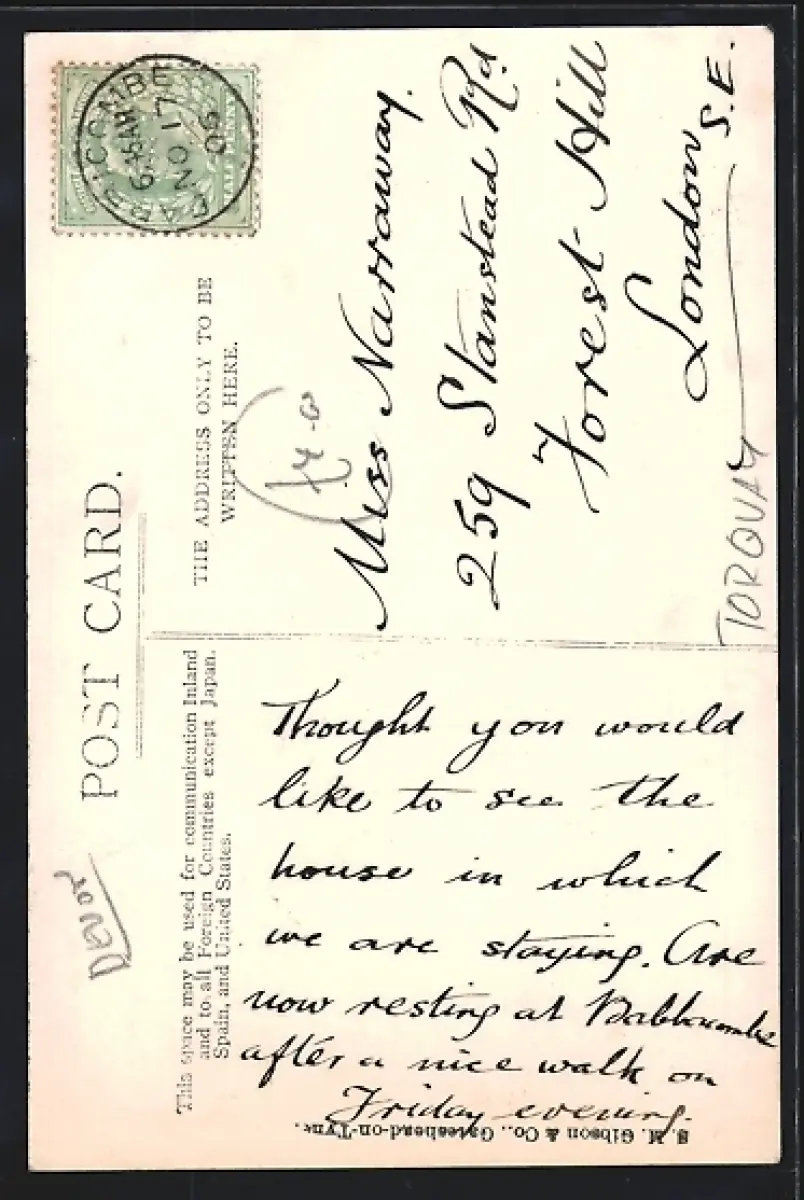 POST CARD.
THE ADDRESS ONLY TO BE
WRITTEN HERE.
BABBICOMBE
NO 17
06
HALFPENNY
Miss Narraway.
259 Stanstead Rd
Forest Hill
London
S.E.
TORQUAY
Devon
This space may be used for communication Inland
and to all Foreign Countries except Japan,
Spain, and United States.
Thought you would
like to see the
house in which
we are staying. Are
now resting at Babbacombe
after a nice walk on
Friday evening.
S. M. Gibson & Co., Gateshead-on-Tyne.